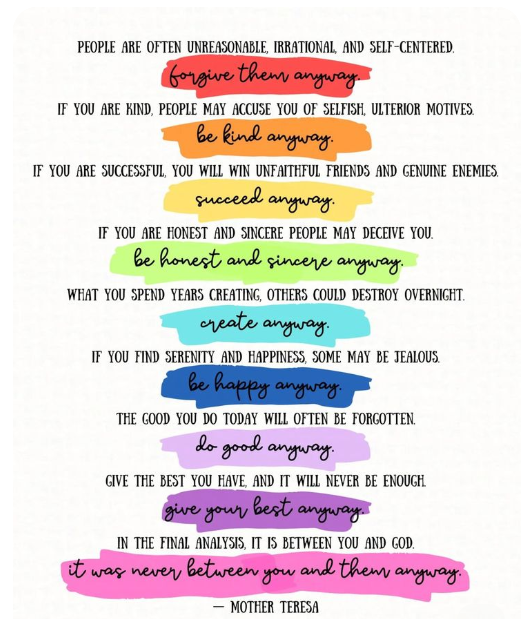 PEOPLE ARE OFTEN UNREASONABLE, IRRATIONAL, AND SELF-CENTERED.
forgive them anyway.
IF YOU ARE KIND, PEOPLE MAY ACCUSE YOU OF SELFISH, ULTERIOR MOTIVES.
be kind anyway.
IF YOU ARE SUCCESSFUL, YOU WILL WIN UNFAITHFUL FRIENDS AND GENUINE ENEMIES.
succeed anyway.
IF YOU ARE HONEST AND SINCERE PEOPLE MAY DECEIVE YOU.
be honest and sincere anyway.
WHAT YOU SPEND YEARS CREATING, OTHERS COULD DESTROY OVERNIGHT.
create anyway.
IF YOU FIND SERENITY AND HAPPINESS, SOME MAY BE JEALOUS.
be happy anyway.
THE GOOD YOU DO TODAY WILL OFTEN BE FORGOTTEN.
do good anyway.
GIVE THE BEST YOU HAVE, AND IT WILL NEVER BE ENOUGH.
give your best anyway.
IN THE FINAL ANALYSIS, IT IS BETWEEN YOU AND GOD.
it was never between you and them anyway.
— MOTHER TERESA